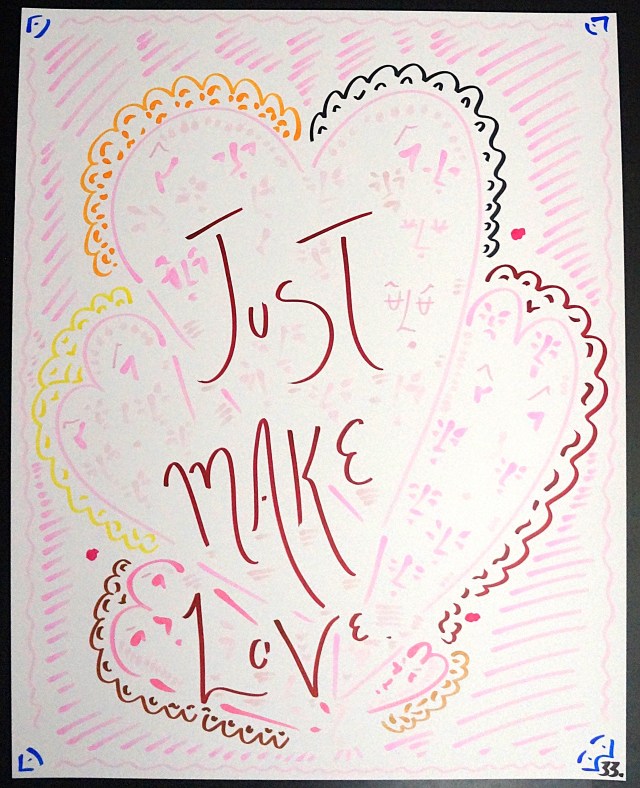 JUST
MAKE
LOVE.
33.